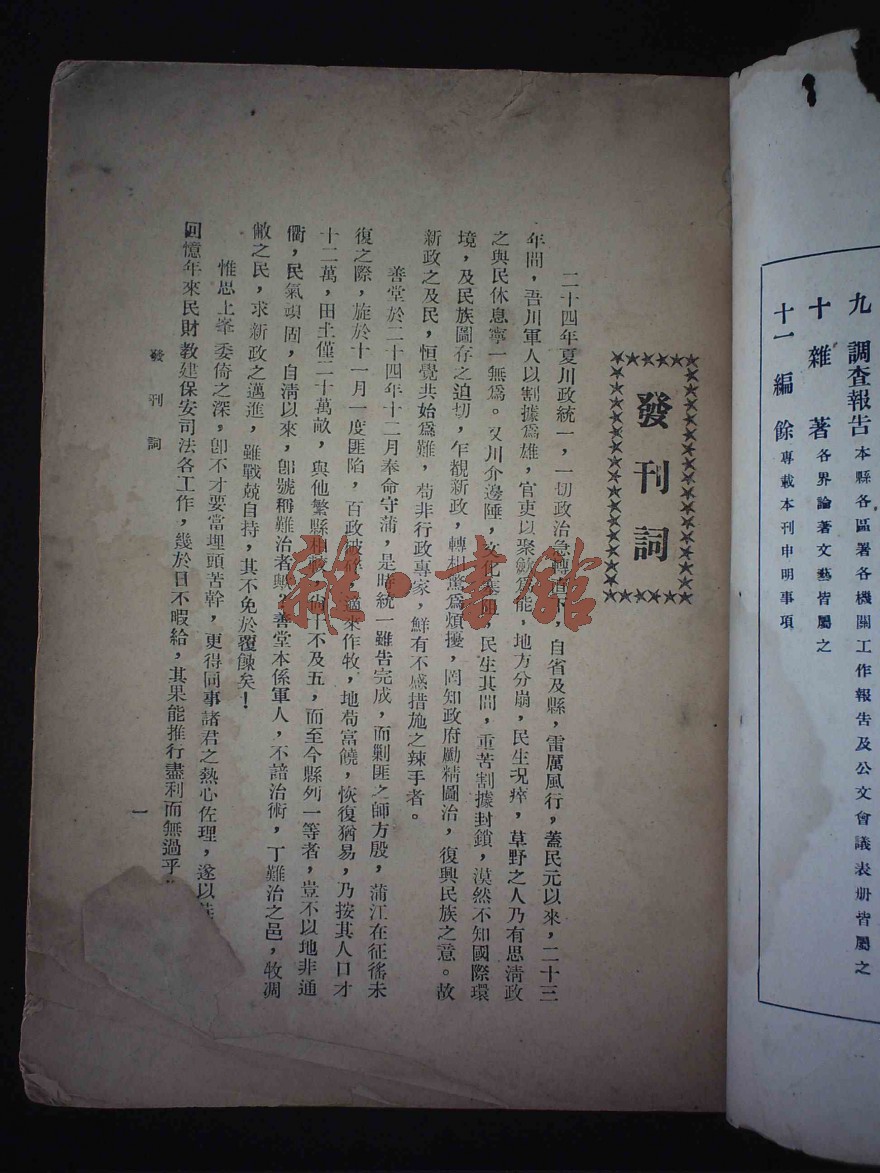 九 調查報告 本縣各區署各機關工作報告及公文會議表册皆屬之
十 雜著 各界論著文藝皆屬之
十一 編餘 專載本刊申明事項
發刊詞
二十四年夏川政統一，一切政治急轉直下，自省及縣，雷厲風行，蓋民元以來，二十三
年間，吾川軍人以割據爲雄，官吏以聚歛爲能，地方分崩，民生况瘁，草野之人乃有思淸政
之與民休息寧一無爲。又川介邊陲，文化，民生其間，重苦割據封鎖，漠然不知國際環
境，及民族圖存之迫切，乍覩新政，轉相驚爲煩擾，罔知政府勵精圖治，復興民族之意。故
新政之及民，恒覺共始爲難，苟非行政專家，鮮有不感措施之辣手者。
善堂於二十四年十二月奉命守蒲，是時統一雖告完成，而剿匪之師方殷，蒲江在征徭未
復之際，旋於十一月一度匪陷，百政破，適來作牧，地苟富饒，恢復猶易，乃按其人口才
十二萬，田土僅二十萬畝，與他繁縣相較，尙十不及五，而至今縣列一等者，豈不以地非通
衢，民氣頑固，自淸以來，卽號稱難治者歟。善堂本係軍人，不諳治術，丁難治之邑，牧凋
敝之民，求新政之邁進，雖戰兢自持，其不免於覆餗矣！
惟思上峯委倚之深，卽不才要當埋頭苦幹，更得同事諸君之熱心佐理，遂以
回憶年來民財教建保安司法各工作，幾於日不暇給，其果能推行盡利而無過乎
發刊詞
一
雜·書館